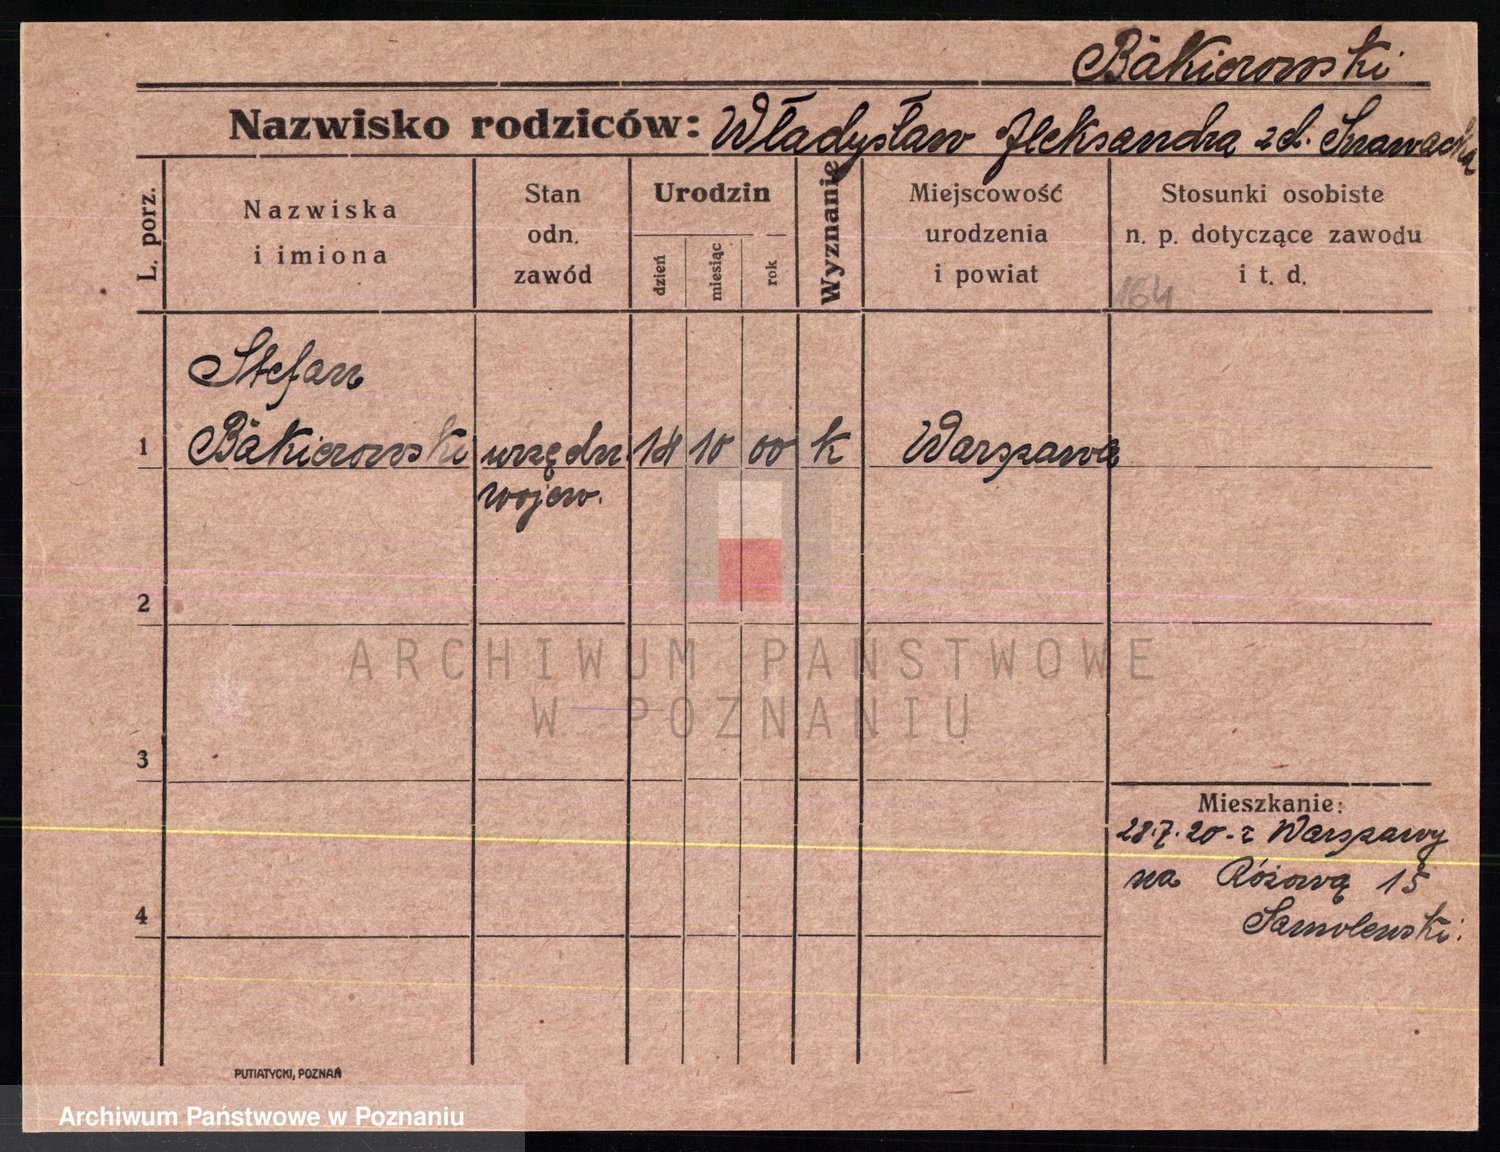 Bäkierowski
Nazwisko rodziców: Władysław Aleksandra z d. Szawacka
L. porz.
Nazwiska
i imiona
Stan
odn.
zawód
Urodzin
dzień
miesiąc
rok
Wyznanie
Miejscowość
urodzenia
i powiat
Stosunki osobiste
n. p. dotyczące zawodu
i t. d.
164
Stefan
1 Bäkierowski urzędn. 14 10 00 k Warszawa
wojew.
2
ARCHIWUM PAŃSTWOWE
W POZNANIU
3
Mieszkanie:
28.7.20 - z Warszawy
na Różową 15
4
Samolewski.
PUTIATYCKI, POZNAŃ
Archiwum Państwowe w Poznaniu